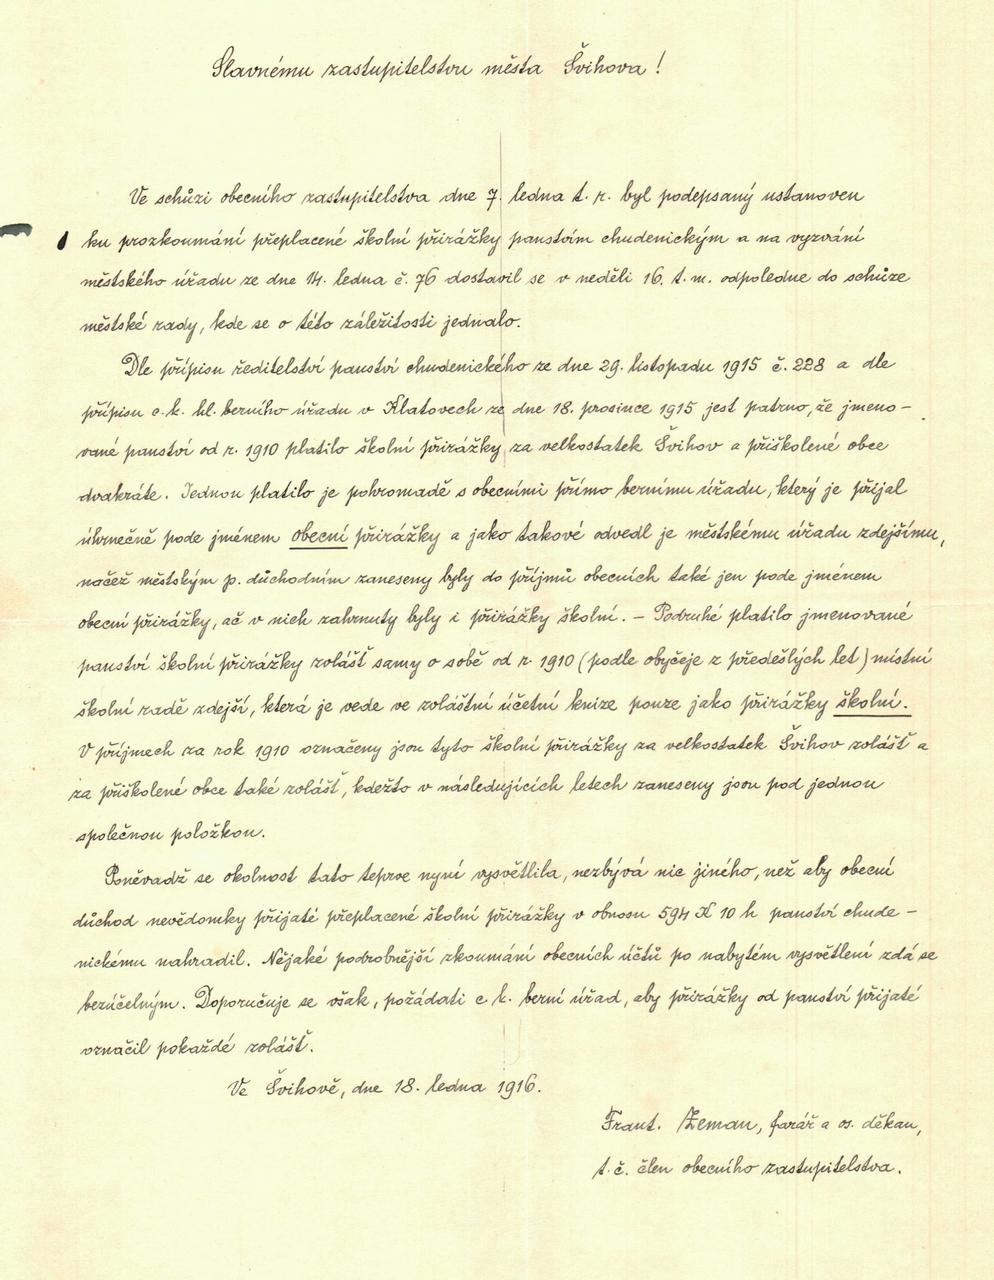 Slavnému zastupitelstvu města Švihova!
Ve schůzi obecního zastupitelstva dne 7. ledna t. r. byl podepsaný ustanoven
ku prozkoumání přeplacené školní přirážky panstvím chudenickým a na vyzvání
městského úřadu ze dne 14. ledna č. 76 dostavil se v neděli 16. t. m. odpoledne do schůze
městské rady, kde se o této záležitosti jednalo.
Dle přípisu ředitelství panství chudenického ze dne 29. listopadu 1915 č. 228 a dle
přípisu c. k. hl. berního úřadu v Klatovech ze dne 18. prosince 1915 jest patrno, že jmeno-
vané panství od r. 1910 platilo školní přirážky za velkostatek Švihov a přiškolené obce
dvakráte. Jednou platilo je pohromadě s obecními přímo bernímu úřadu, který je přijal
úhrnečně pode jménem obecní přirážky a jako takové odvedl je městskému úřadu zdejšímu,
načež městským p. důchodním zaneseny byly do příjmů obecních také jen pode jménem
obecní přirážky, ač v nich zahrnuty byly i přirážky školní. – Podruhé platilo jmenované
panství školní přirážky zvlášť samy o sobě od r. 1910 (podle obyčeje z předešlých let) místní
školní radě zdejší, která je vede ve zvláštní účetní knize pouze jako přirážky školní.
V příjmech za rok 1910 označeny jsou tyto školní přirážky za velkostatek Švihov zvlášť a
za přiškolené obce také zvlášť, kdežto v následujících letech zaneseny jsou pod jednou
společnou položkou.
Poněvadž se okolnost tato teprve nyní vysvětlila, nezbývá nic jiného, než aby obecní
důchod nevědomky přijaté přeplacené školní přirážky v obnosu 594 K 10 h panství chude-
nickému nahradil. Nějaké podrobnější zkoumání obecních účtů po nabytém vysvětlení zdá se
bezúčelným. Doporučuje se však, požádati c. k. berní úřad, aby přirážky od panství přijaté
označil pokaždé zvlášť.
Ve Švihově, dne 18. ledna 1916.
Frant. Zeman, farář a os. děkan,
t. č. člen obecního zastupitelstva.